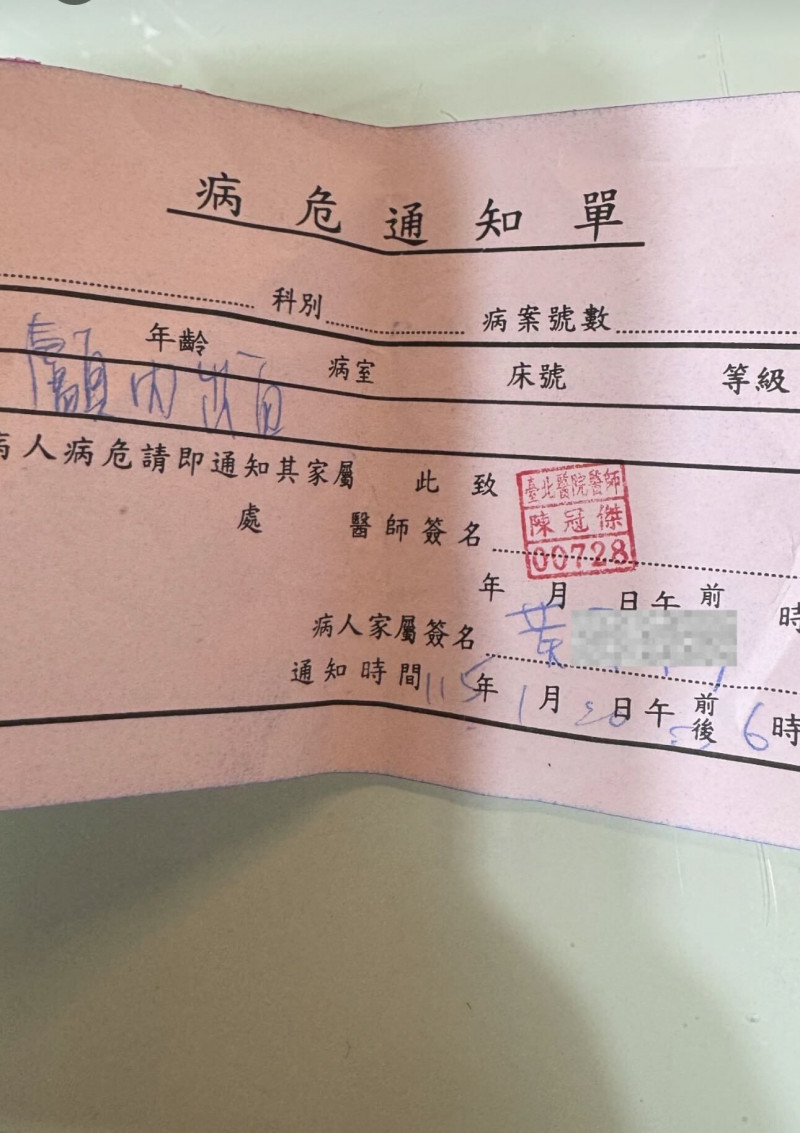 病危通知單
科別 病案號數
年齡 病室 床號 等級
顱內出血
病人病危請即通知其家屬 此致
處 醫師簽名
臺北醫院醫師
陳冠傑
00728
年 月 日午前 時
病人家屬簽名 黃
通知時間 115年1月20日午前後 6時